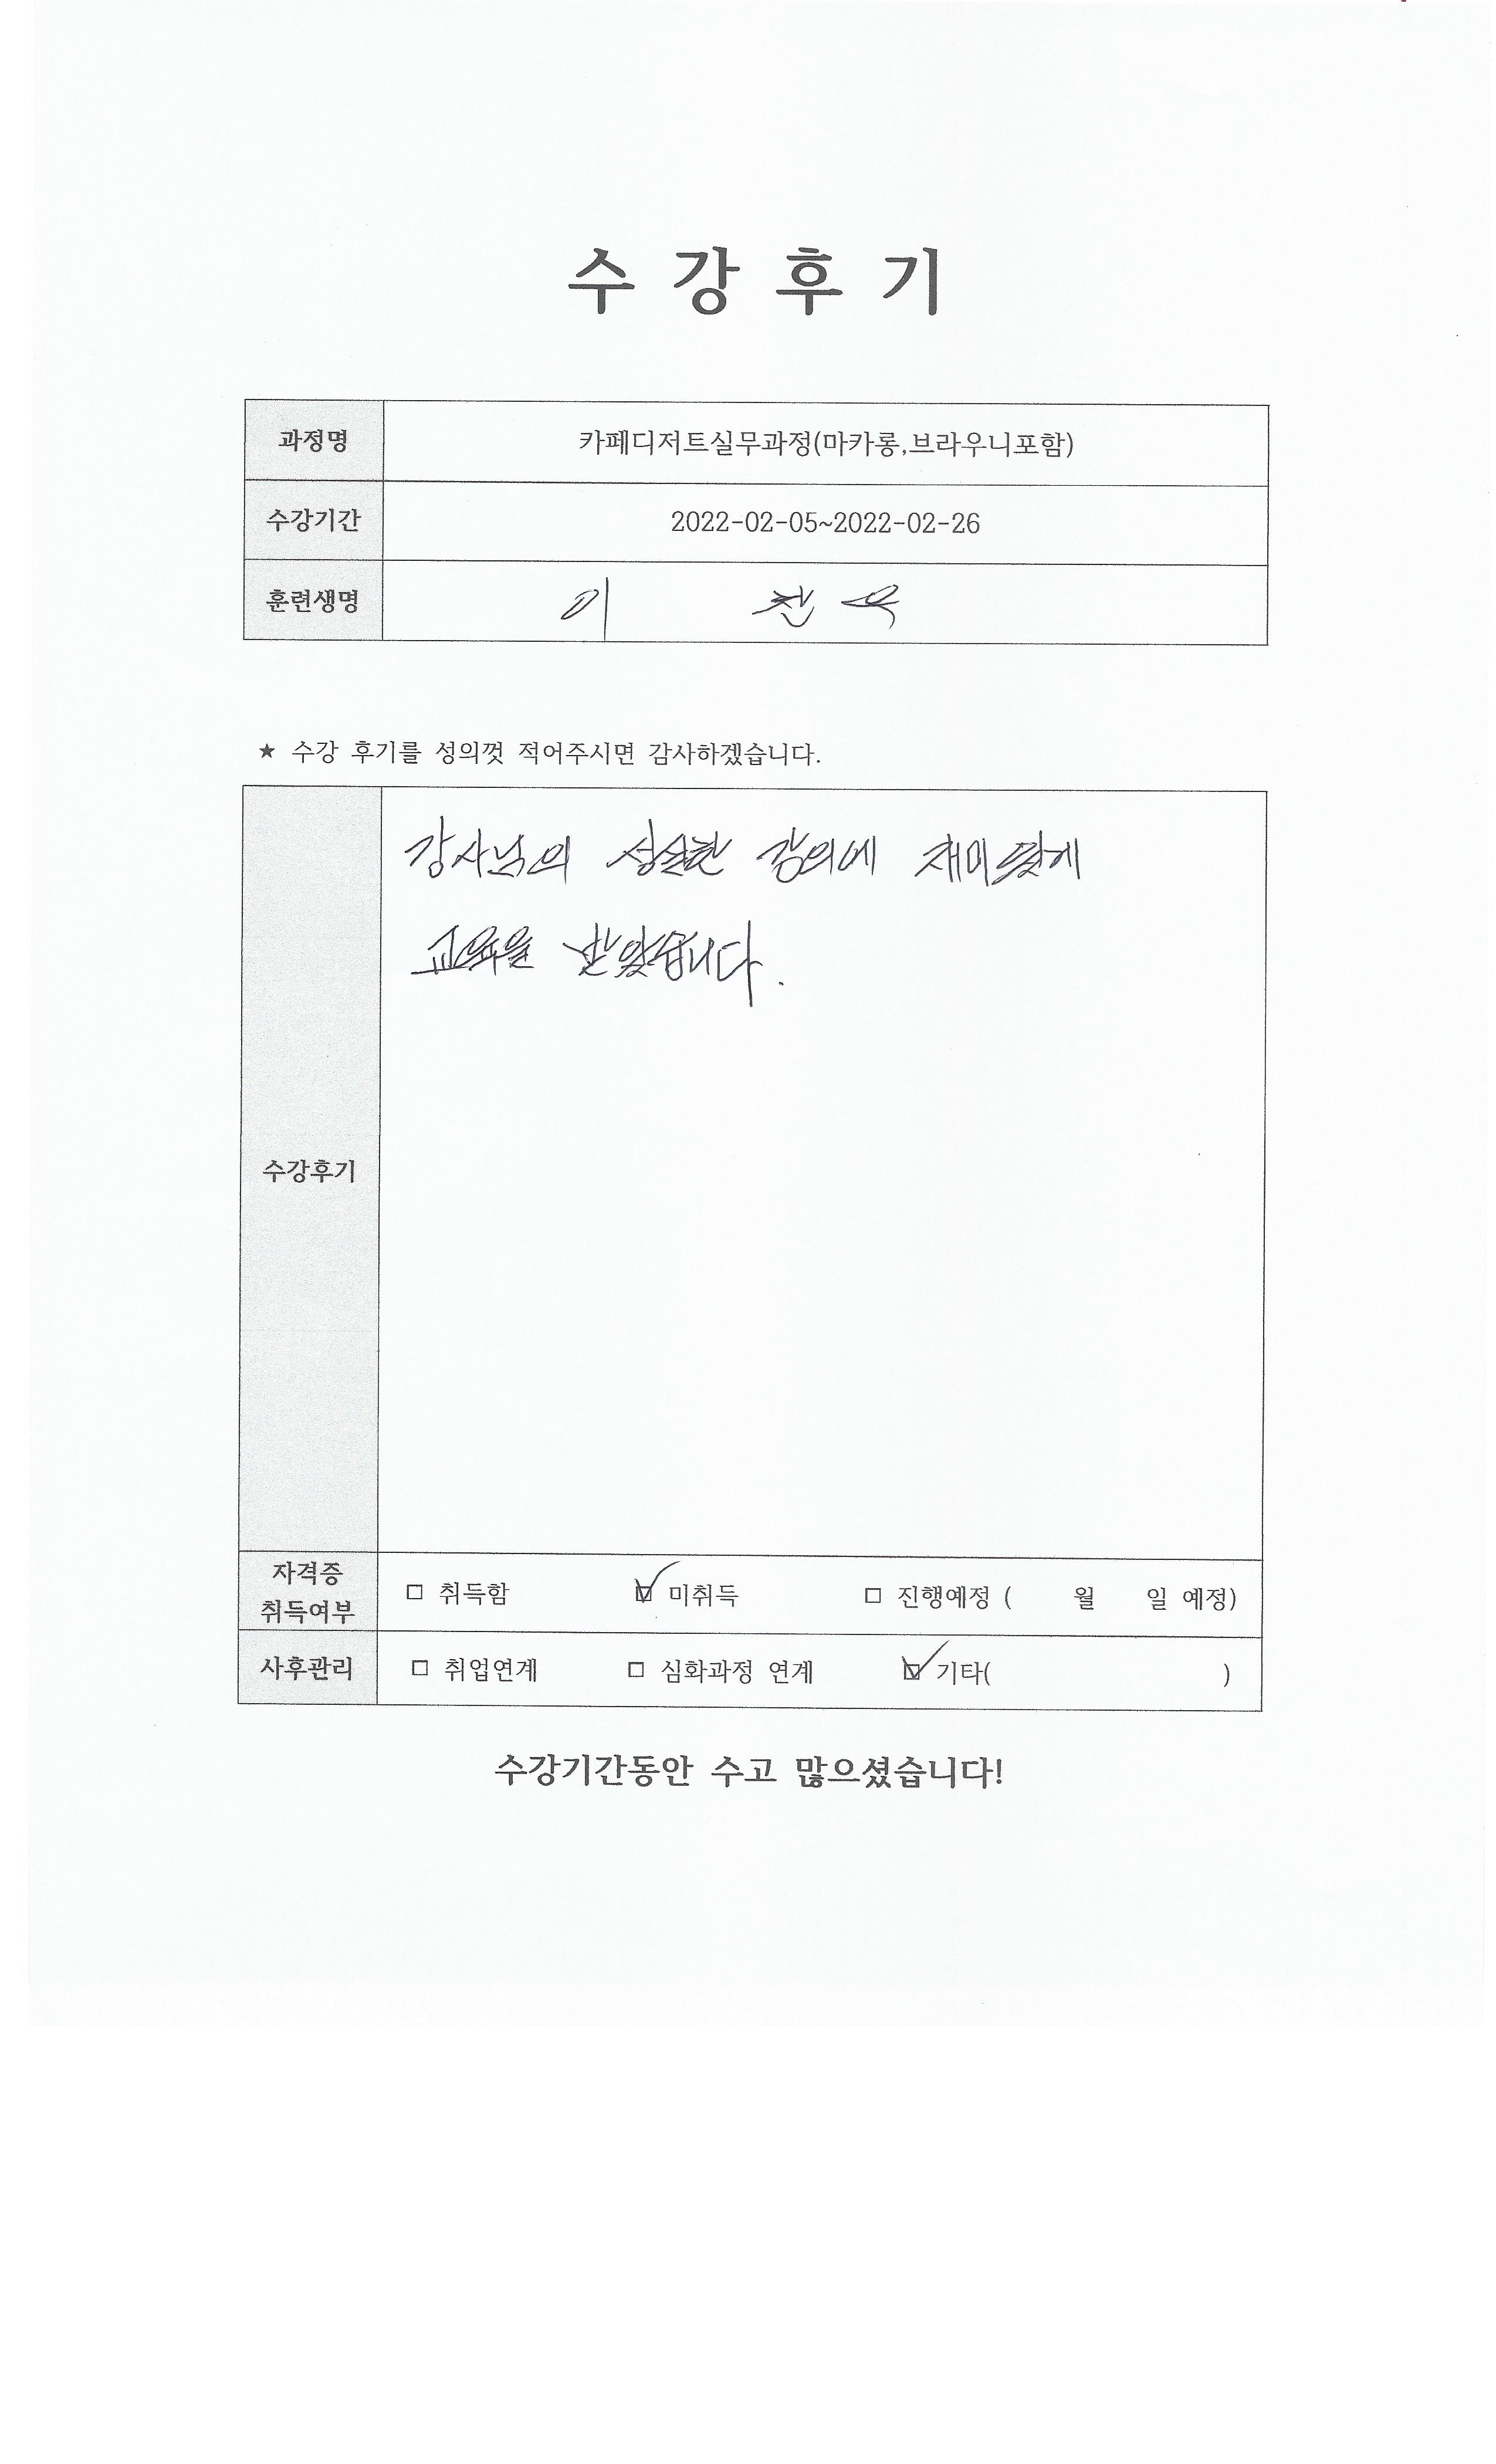 수 강 후 기
과정명 카페디저트실무과정(마카롱,브라우니포함)
수강기간 2022-02-05~2022-02-26
훈련생명 이
★ 수강 후기를 성의껏 적어주시면 감사하겠습니다.
강사님의 성실한 강의에 재미있게
교육을 받았습니다.
수강후기
자격증
취득여부 □ 취득함 ☑ 미취득 □ 진행예정 ( 월 일 예정)
사후관리 □ 취업연계 □ 심화과정 연계 ☑ 기타( )
수강기간동안 수고 많으셨습니다!